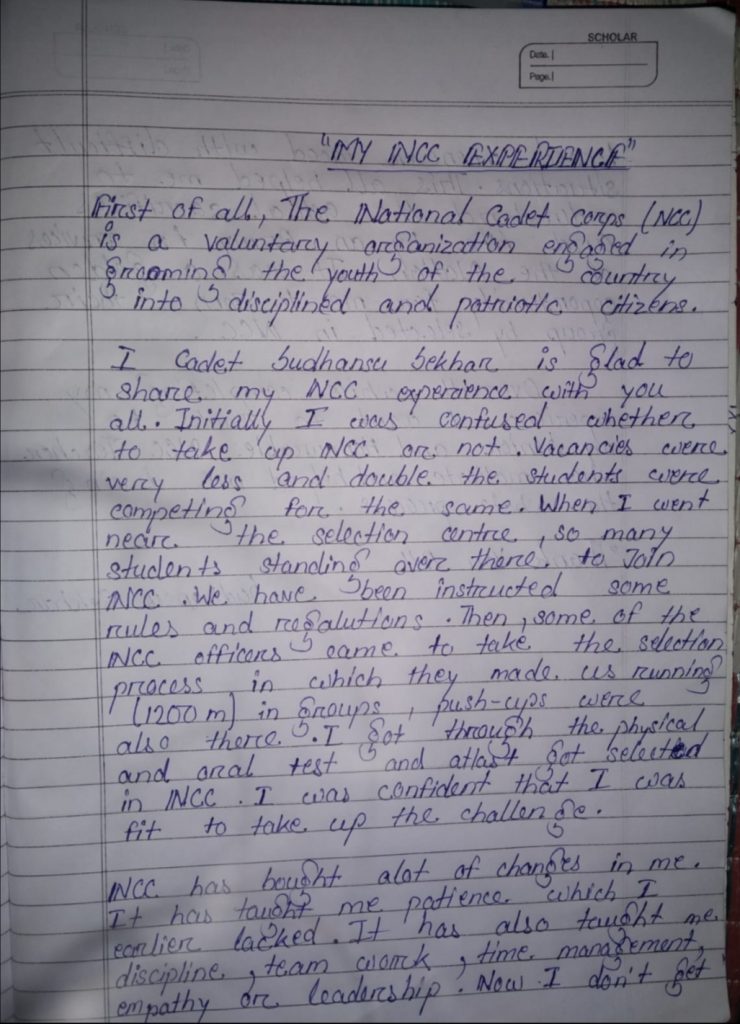 SCHOLAR
Date.
Page.
"MY NCC EXPERIENCE"
First of all, The National Cadet Corps (NCC)
is a valuntary organization engaged in
grooming the youth of the country
into disciplined and patriotic citizens.
I Cadet Sudhansu Sekhar is glad to
share my NCC experience with you
all. Initially I was confused whether
to take up NCC or not. Vacancies were
very less and double the students were
competing for the same. When I went
near the selection centre, so many
students standing over there to Join
NCC. We have been instructed some
rules and regalutions. Then, some of the
NCC officers came to take the selection
process in which they made us running
(1200 m) in groups, push-ups were
also there. I got through the physical
and oral test and atlast got selected
in NCC. I was confident that I was
fit to take up the challenge.
NCC has bought alot of changes in me.
It has taught me patience which I
earlier lacked. It has also taught me
discipline, team work, time management,
empathy or leadership. Now I don't get